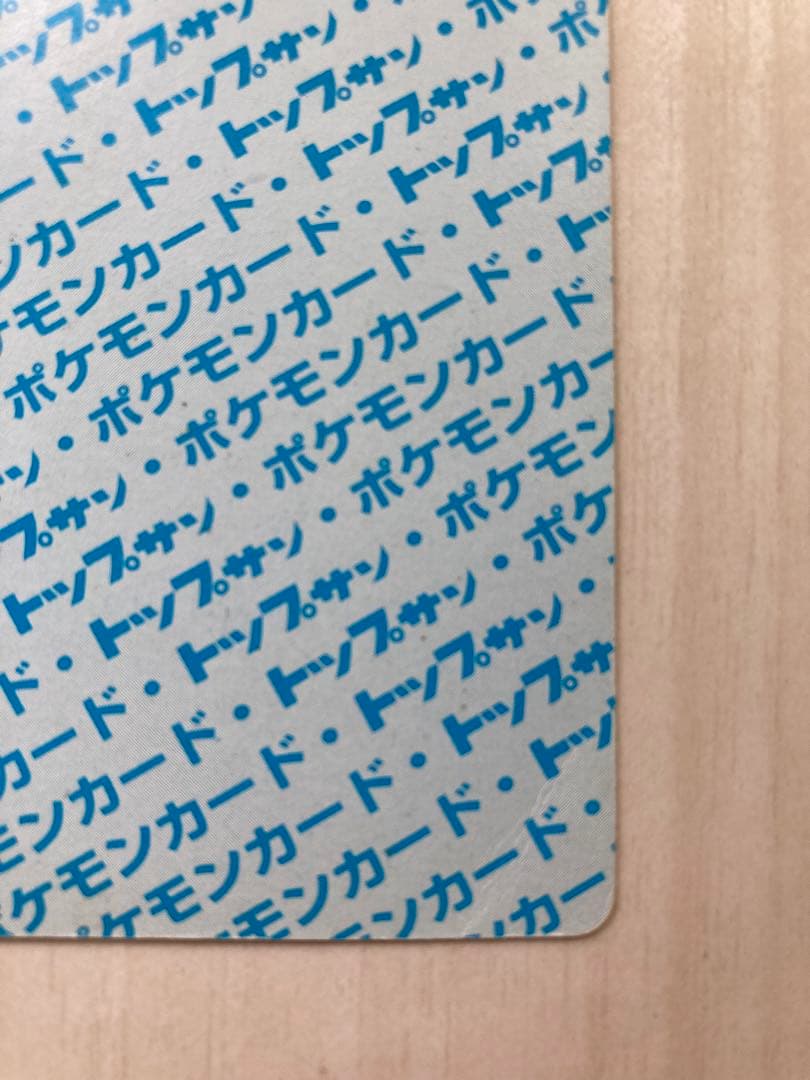 ・トップサン
ード・トップサン・
ンカード・トップサン・ポ
ケモンカード・トップサン・ポ
ポケモンカード・トップサン・
ン・ポケモンカード・トップサ
サン・ポケモンカード・ト
プサン・ポケモンカード
トップサン・ポケモンカー
ド・トップサン・ポケモン
カード・トップサン・ポケ
モンカード・トップサン・
ケモンカード・トップサ
ケモンカード・トッ
モンカード・
ンカー